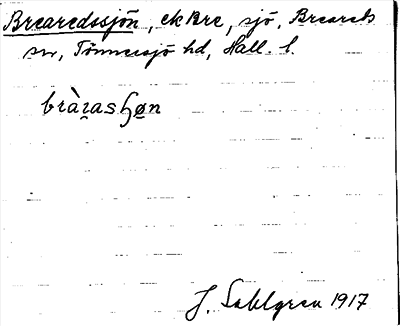 Brearedssjön, ek Bre, sjö, Breareds
sn, Tönnersjö hd, Hall. l.
bràrasɧøn
J. Sahlgren 1917